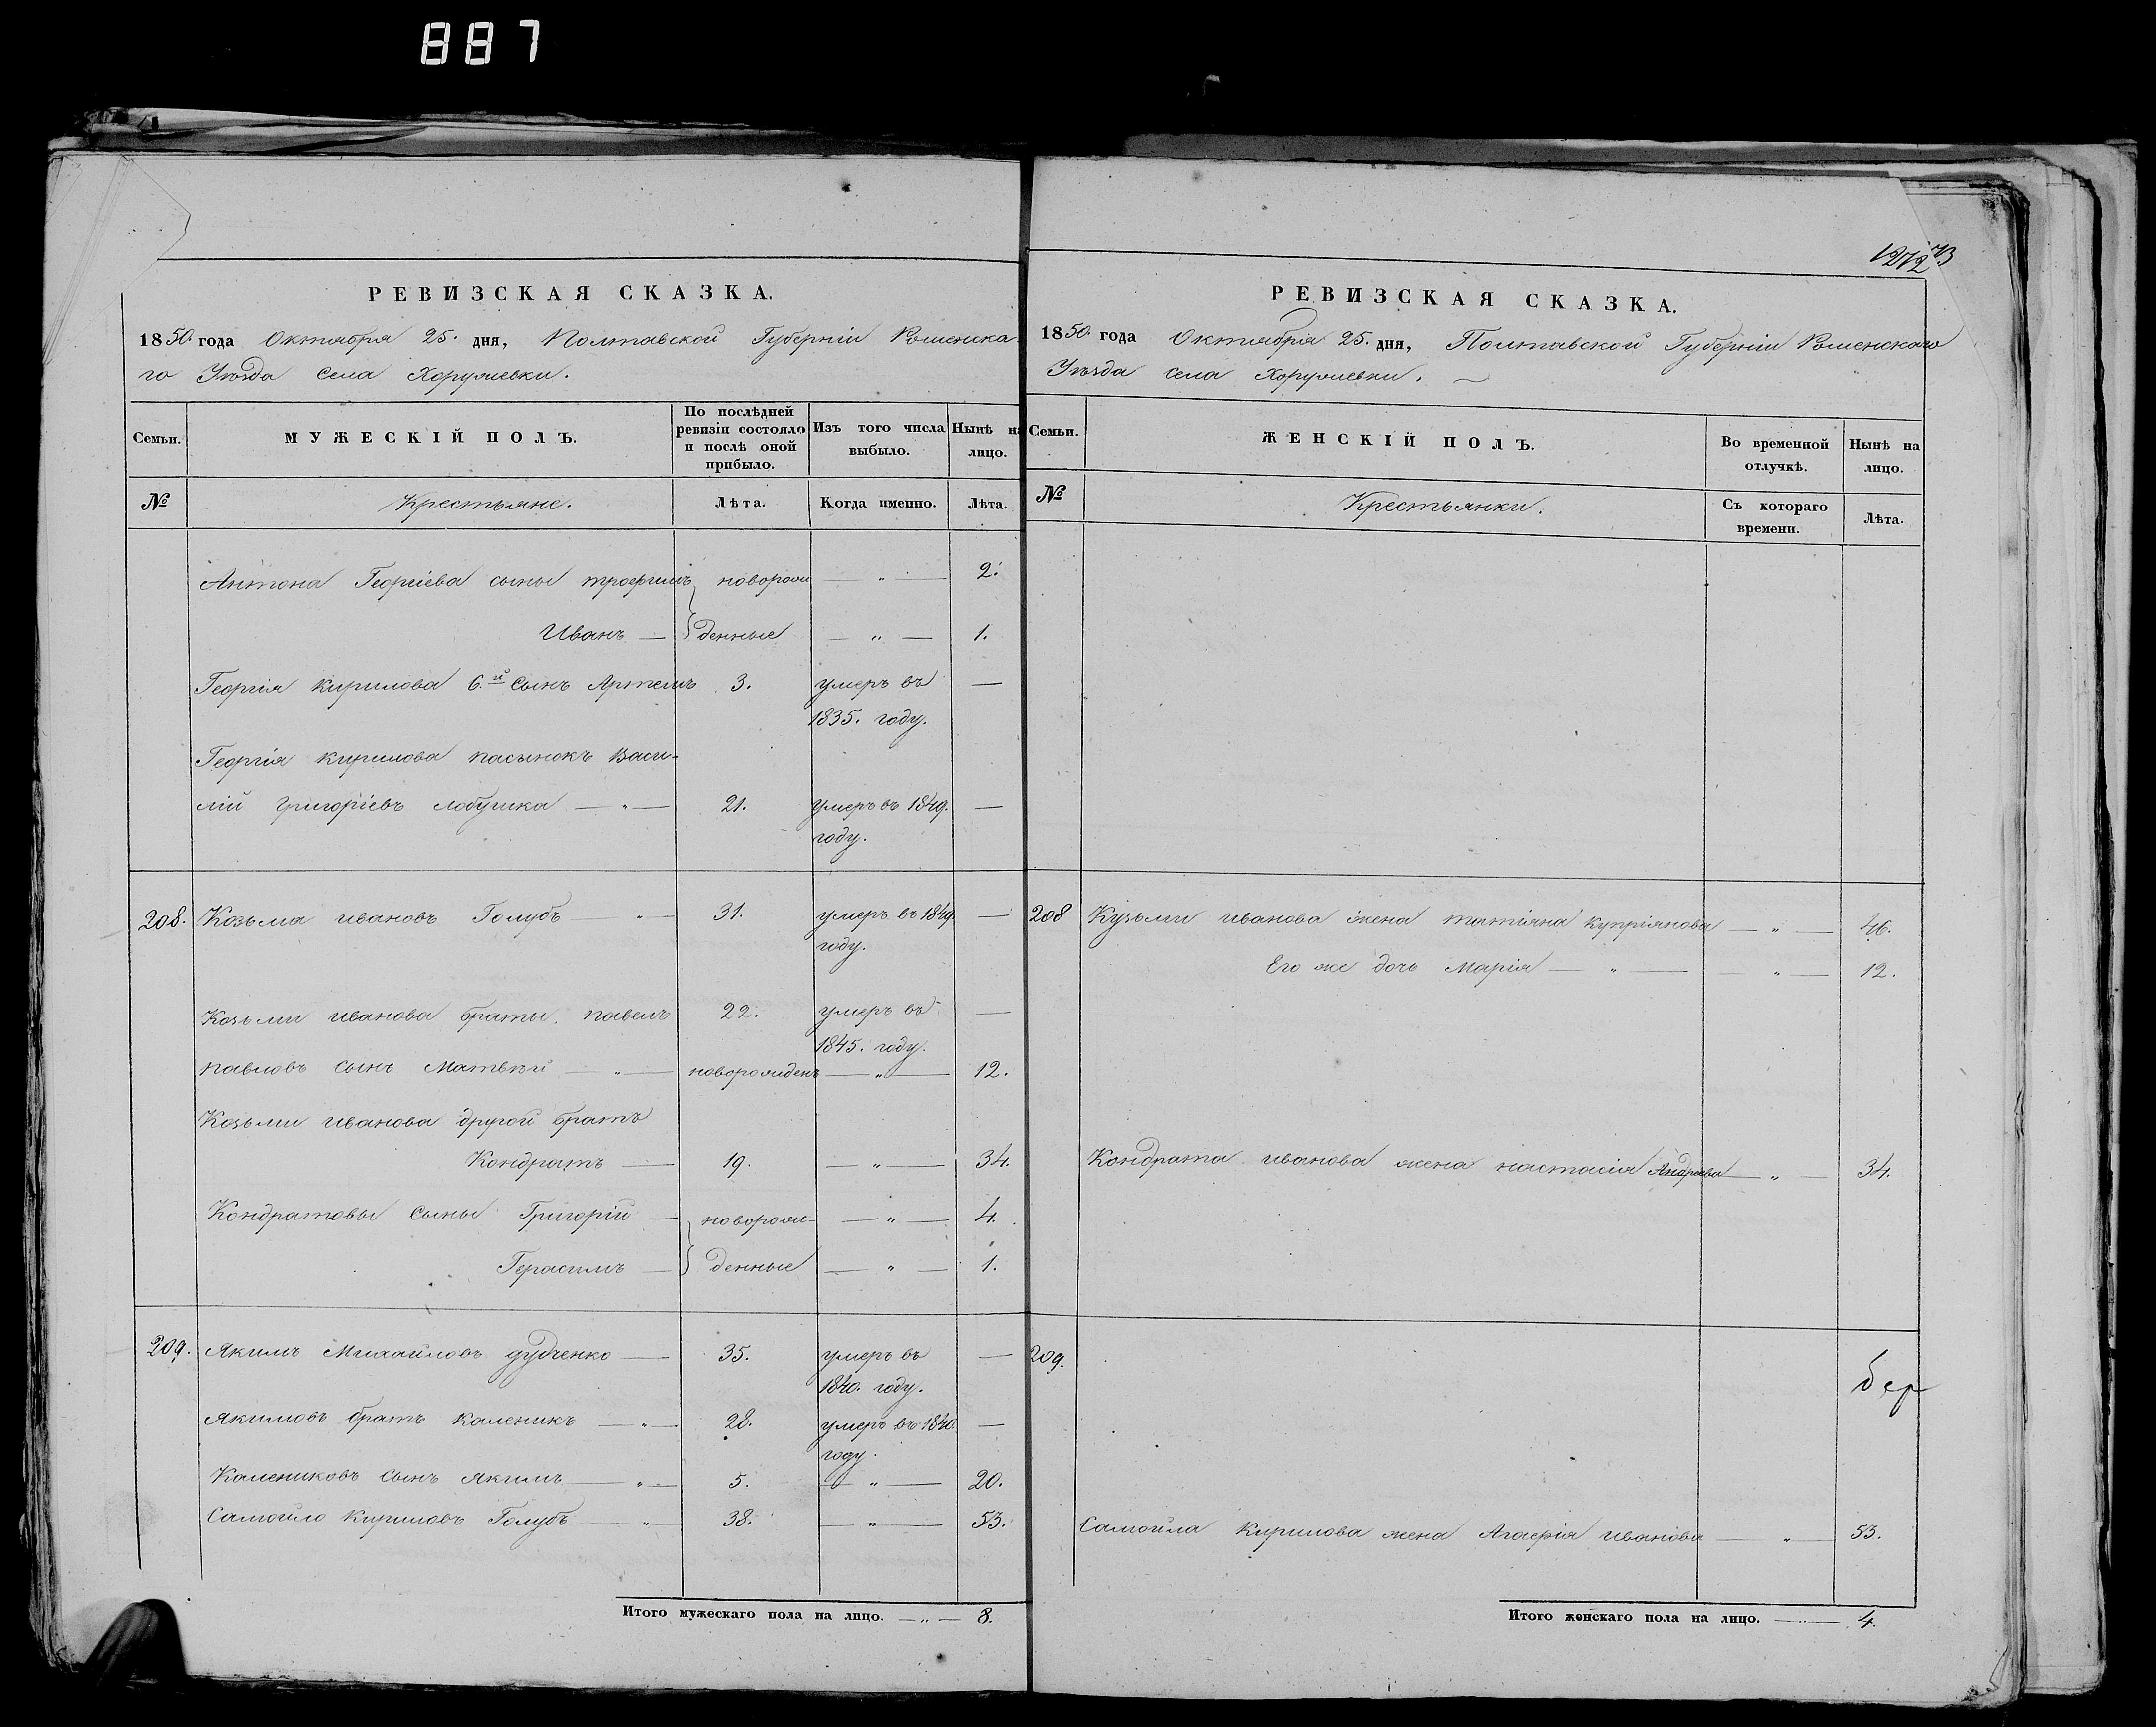 887
РЕВИЗСКАЯ СКАЗКА.
1850. года Октября 25. дня, Полтавской Губерніи Роменска-
го Уѣзда Села Хоружевки.
Семьи. МУЖЕСКІЙ ПОЛЪ. По послѣдней ревизіи состояло и послѣ оной прибыло. Изъ того числа выбыло. Нынѣ на лицо.
№ Крестьяне. Лѣта. Когда именно. Лѣта.
Антона Георгіева сыны трофимъ новорож — „ — 2.
Иванъ — денные — „ — 1.
Георгія Кирилова 6.й Сынъ Артемъ 3. умеръ въ —
1835. году.
Георгія Кирилова пасынокъ Васи-
лій Григоріевъ Лобушка — „ — 21. умеръ въ 1849. —
году.
208. Козьма Ивановъ Голубъ — „ — 31. умеръ въ 1849. —
году.
Козьми Иванова браты. павелъ 22. умеръ въ —
1845. году.
павловъ сынъ Матвѣй — „ — новорожденъ — „ — 12.
Козьми Иванова другой братъ
Кондратъ — 19. — „ — 34.
Кондратовы Сыны Григорій — новорож- — „ — 4.
Герасимъ — денные — „ — 1.
209. Якимъ Михайловъ дудченко — 35. умеръ въ —
1840. году.
Якимовъ братъ Каленикъ — „ — 28. умеръ въ 1840. —
году.
Калениковъ Сынъ Якимъ — „ — 5. — „ — 20.
Самойло Кириловъ Голубъ — „ — 38. — „ — 53.
Итого мужескаго пола на лицо. — „ — 8.
РЕВИЗСКАЯ СКАЗКА.
1850. года Октября 25. дня, Полтавской Губерніи Роменскаго
Уѣзда Села Хоружевки. —
Семьи. ЖЕНСКІЙ ПОЛЪ. Во временной отлучкѣ. Нынѣ на лицо.
№ Крестьянки. Съ котораго времени. Лѣта.
208 Кузьми Иванова жена татіяна Купріянова — „ — 46.
Его же дочь Марія — „ — „ — 12.
Кондрата Иванова жена настасія Андреева — „ — 34.
209.
Самойла Кирилова жена Агафія Иванова — „ — 53.
Итого женскаго пола на лицо. — 4.